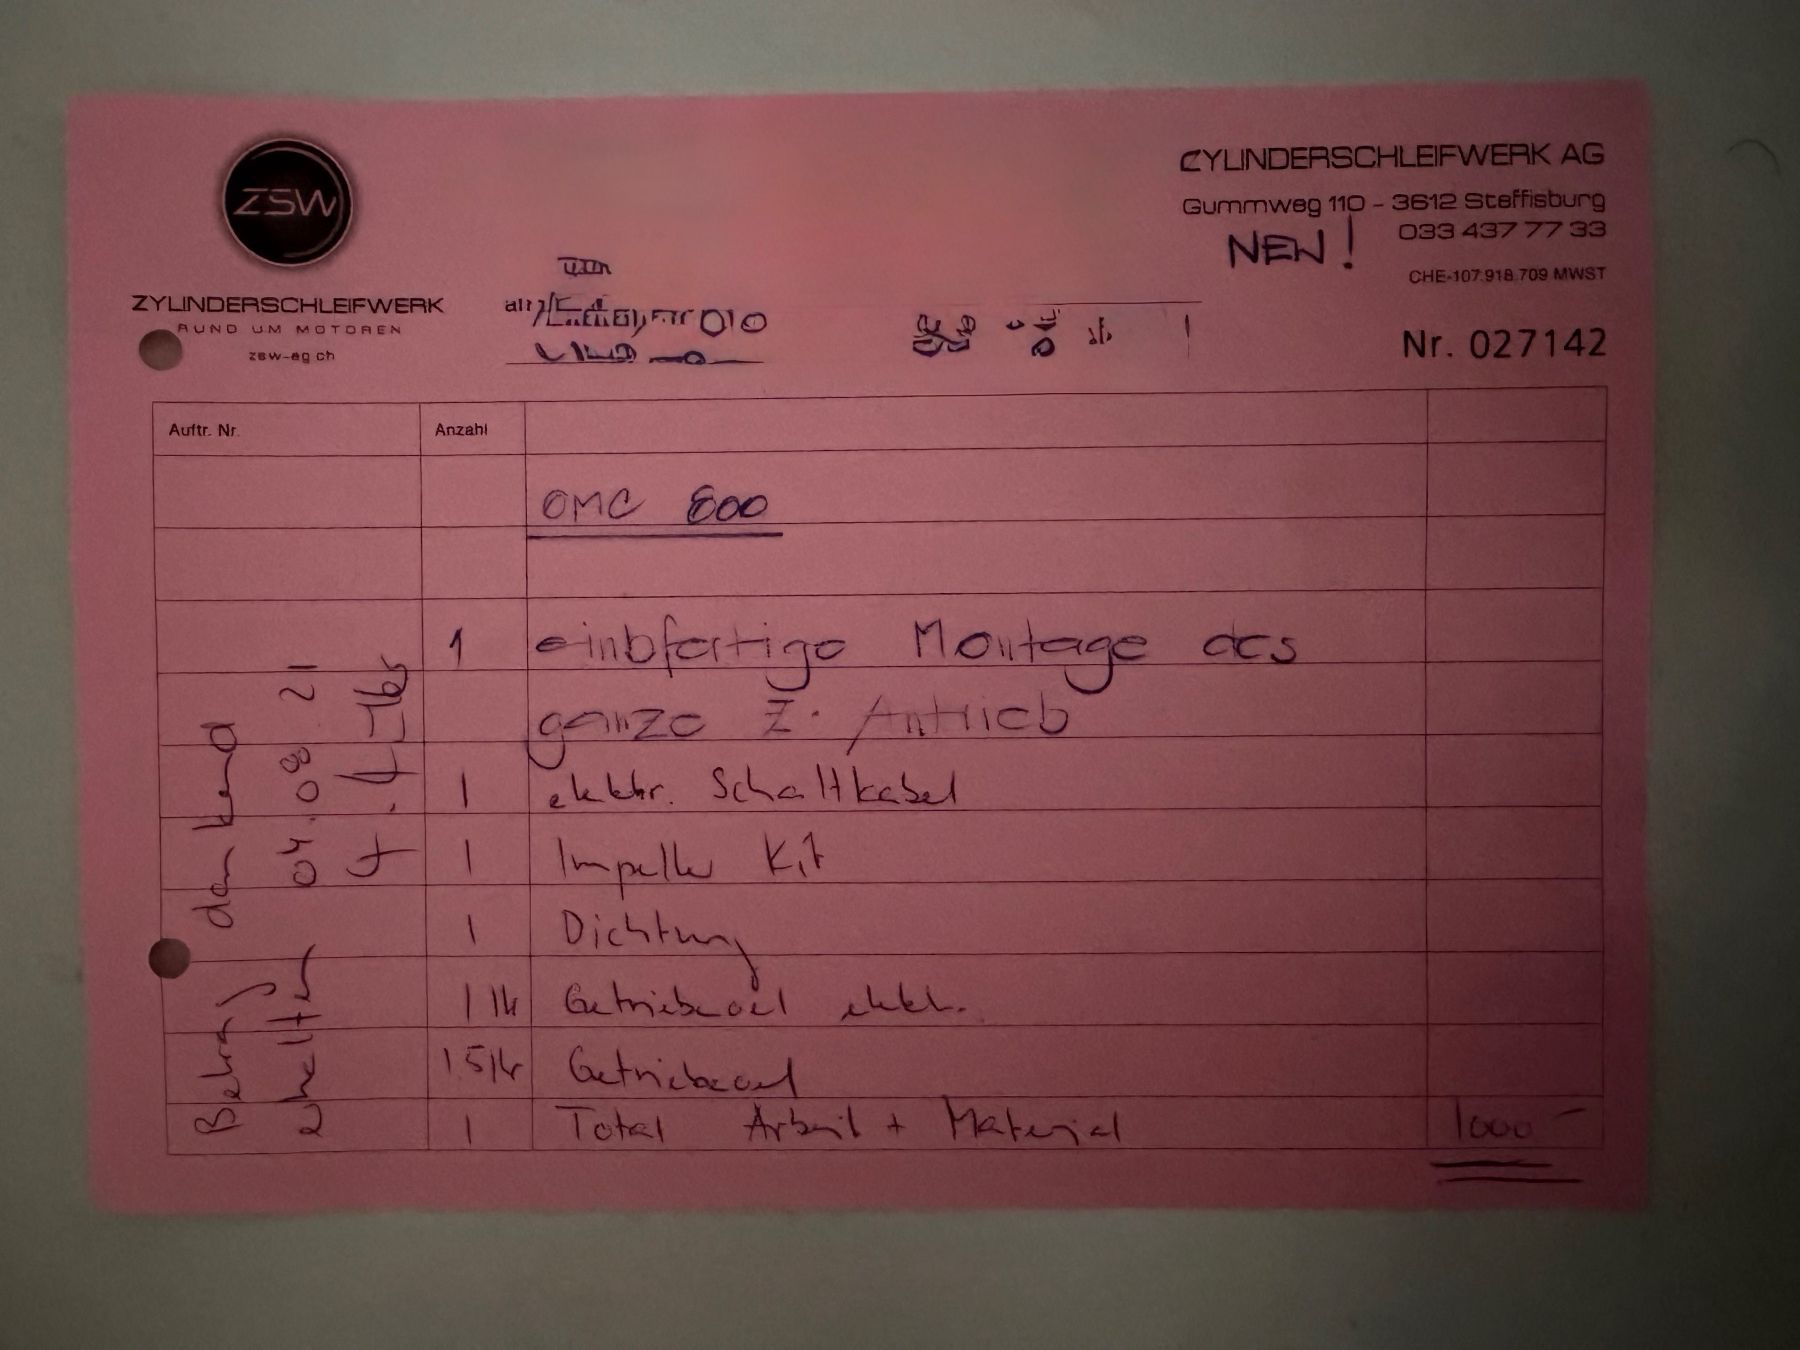 ZSW
ZYLINDERSCHLEIFWERK
RUND UM MOTOREN
zsw-ag ch
ZYLINDERSCHLEIFWERK AG
Gummweg 110 - 3612 Steffisburg
033 437 77 33
NEW!
CHE-107.918.709 MWST
Nr. 027142
Auftr. Nr.
Anzahl
OMC 800
1 einbfertige Montage des
ganze Z. Antrieb
1 elektr. Schaltkabel
1 Impeller Kit
1 Dichtung
1 ltr Getriebeoel elektr.
1.5 ltr Getriebeoel
1 Total Arbeit + Material 1000 -
Betrag dankend
erhalten 04.08 21